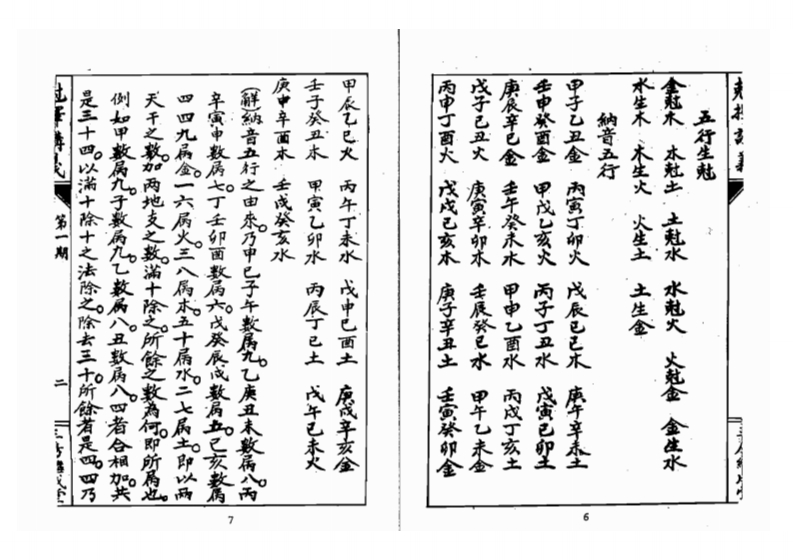 五行生尅
金尅木 木尅土 土尅水 水尅火 火尅金 金生水
水生木 木生火 火生土 土生金
納音五行
甲子乙丑金 丙寅丁卯火 戊辰己巳木 庚午辛未土
壬申癸酉金 甲戌乙亥火 丙子丁丑水 戊寅己卯土
庚辰辛巳金 壬午癸未木 甲申乙酉水 丙戌丁亥土
戊子己丑火 庚寅辛卯木 壬辰癸巳水 甲午乙未金
丙申丁酉火 戊戌己亥木 庚子辛丑土 壬寅癸卯金
6
甲辰乙巳火 丙午丁未水 戊申己酉土 庚戌辛亥金
壬子癸丑木 甲寅乙卯水 丙辰丁巳土 戊午己未火
庚申辛酉木 壬戌癸亥水
(解)納音五行之由來。乃甲己子午數属九。乙庚丑未數属八丙
辛寅申數属七。丁壬卯酉數属六。戊癸辰戌數属五。巳亥數属
四四九属金。一六属火。三八属木。五十属水。二七属土。即以兩
天干之數。加兩地支之數。滿十除之。所餘之數為何。即所属也。
例如甲數属九。子數属九。乙數属八。丑數属八。四者合相加。共
是三十四。以滿十除十之法除之。除去三十。所餘者是四。四乃
第一期
二
7